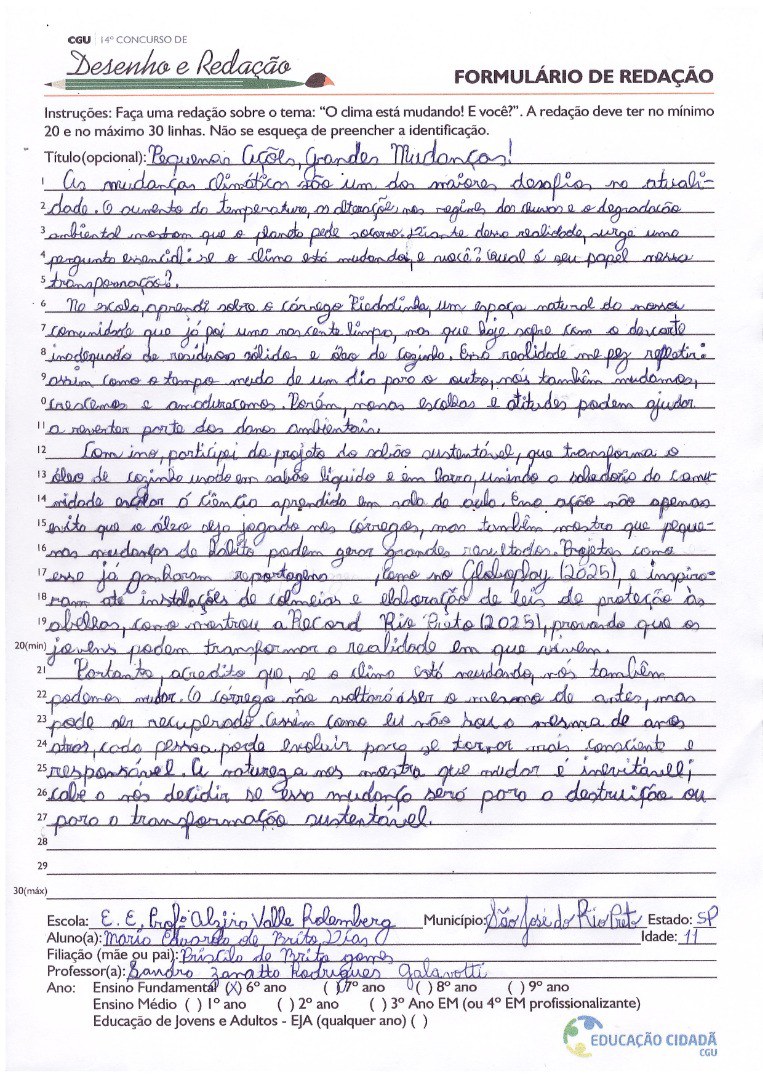 CGU | 14º CONCURSO DE
Desenho e Redação
FORMULÁRIO DE REDAÇÃO
Instruções: Faça uma redação sobre o tema: “O clima está mudando! E você?”. A redação deve ter no mínimo
20 e no máximo 30 linhas. Não se esqueça de preencher a identificação.
Título(opcional): Pequenas Ações, Grandes Mudanças!
1 As mudanças climáticas são um dos maiores desafios na atuali-
2 dade. O aumento da temperatura, as alterações nos regimes das chuvas e a degradação
3 ambiental mostram que o planeta pede socorro. Diante dessa realidade, surge uma
4 pergunta essencial: se o clima está mudando, e você? Qual é seu papel nessa
5 transformação?.
6 Na escola, aprendi sobre o córrego Piedadinha, um espaço natural da nossa
7 comunidade que já foi uma nascente limpa, mas que hoje sofre com o descarte
8 inadequado de resíduos sólidos e óleo de cozinha. Essa realidade me fez refletir:
9 assim como o tempo muda de um dia para o outro, nós também mudamos,
0 crescemos e amadurecemos. Porém, nossas escolhas e atitudes podem ajudar
11 a reverter parte dos danos ambientais.
12 Com isso, participei do projeto do sabão sustentável, que transforma o
13 óleo de cozinha usado em sabão líquido e em barra, unindo a sabedoria da comu
14 nidade escolar á Ciência aprendida em sala de aula. Essa ação não apenas
15 evita que o óleo seja jogado nos córregos, mas também mostra que peque-
16 nas mudanças de hábito podem gerar grandes resultados. Projetos como
17 esse já ganharam reportagens , como no Globoplay (2025), e inspira-
18 ram até instalações de colmeias e elaboração de leis de proteção às
19 abelhas, como mostrou a Record Rio Preto (2025), provando que os
20(min) jovens podem transformar a realidade em que vivem.
21 Portanto, acredito que, se o clima está mudando, nós também
22 podemos mudar. O córrego não voltará a ser o mesmo de antes, mas
23 pode ser recuperado. Assim como eu não sou a mesma de anos
24 atras, cada pessoa pode evoluir para se tornar mais consciente e
25 responsável. A natureza nos mostra que mudar é inevitável;
26 cabe a nós decidir se essa mudança será para a destruição ou
27 para a transformação sustentável.
28
29
30(máx)
Escola: E. E. Profº Alzira Valle Rolemberg Município: São José do Rio Preto Estado: SP
Aluno(a): Maria Eduarda de Brito Dias Idade: 11
Filiação (mãe ou pai): Priscila de Brito gomes
Professor(a): Sandra Zanatta Rodrigues Galavotti
Ano: Ensino Fundamental (X) 6º ano ( ) 7º ano ( ) 8º ano ( ) 9º ano
Ensino Médio ( ) 1º ano ( ) 2º ano ( ) 3º Ano EM (ou 4º EM profissionalizante)
Educação de Jovens e Adultos - EJA (qualquer ano) ( )
EDUCAÇÃO CIDADÃ
CGU